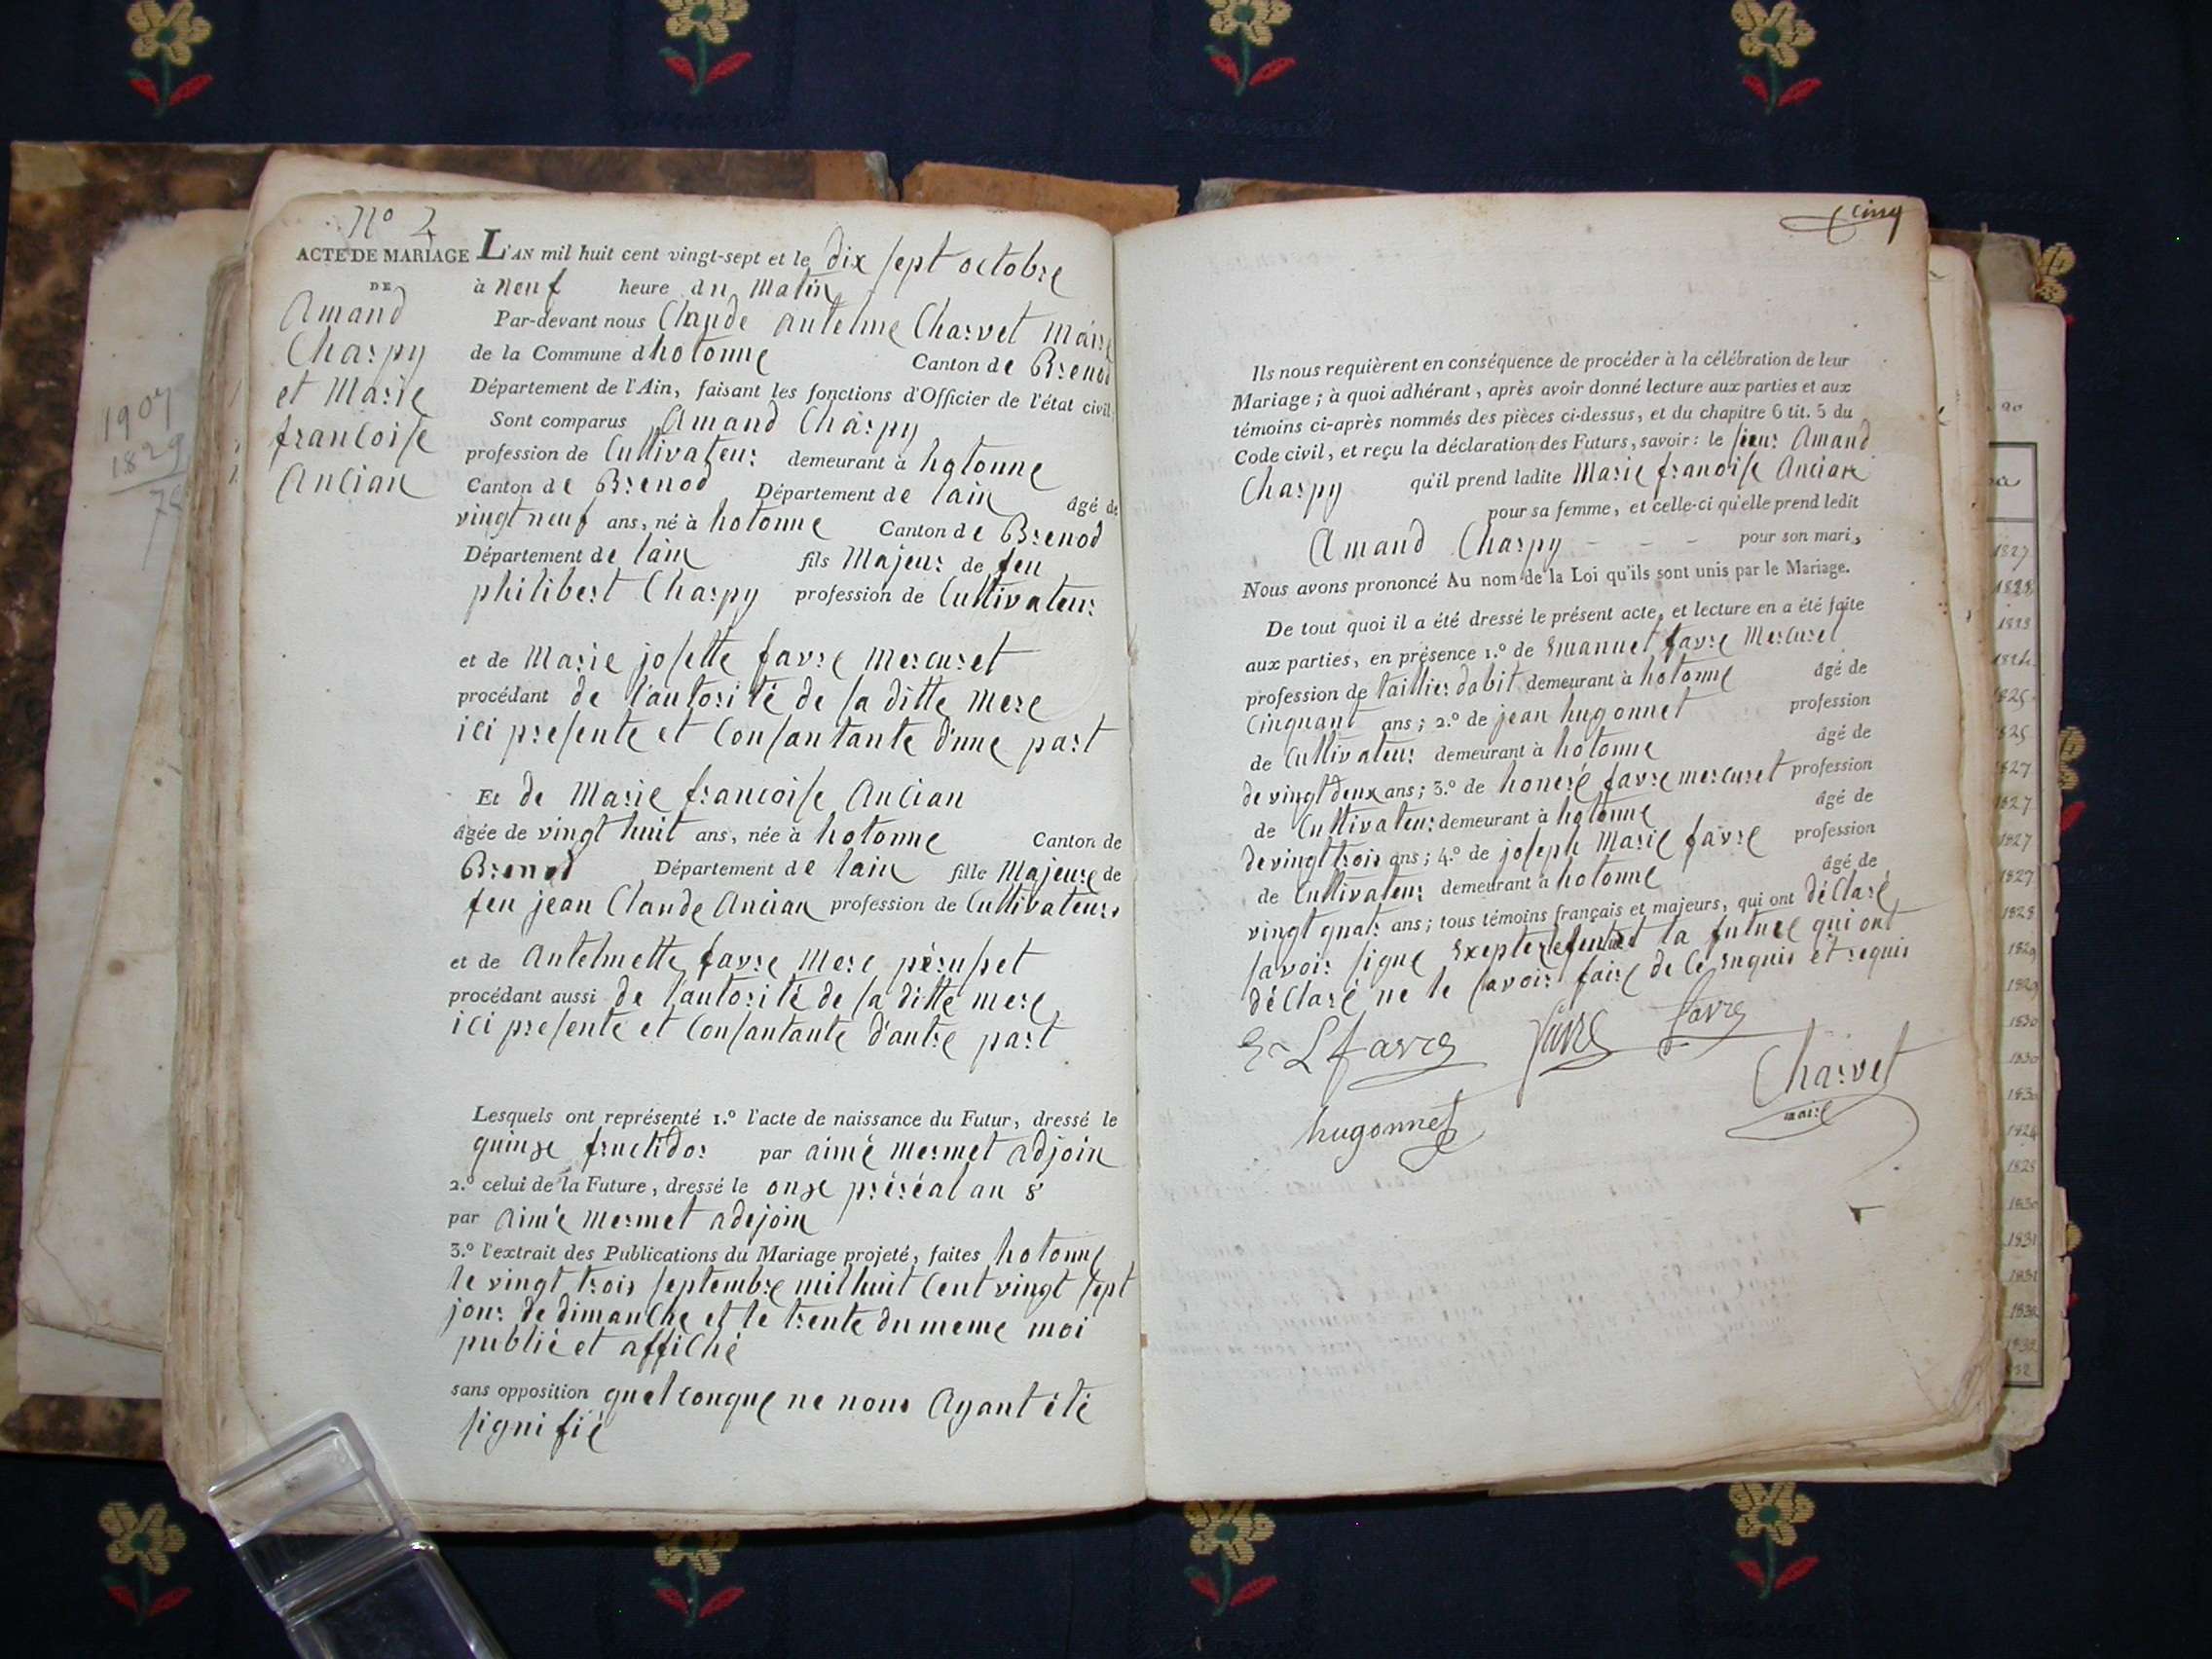 N° 2
ACTE DE MARIAGE
DE
Amand
Charpy
et Marie
francoise
Ancian
L'AN mil huit cent vingt-sept et le dix sept octobre
à neuf heure du Matin
Par-devant nous Claude antelme Charvet Maire
de la Commune d hotonne Canton de Brenod
Département de l'Ain, faisant les fonctions d'Officier de l'état civil.
Sont comparus Amand Charpy
profession de Cultivateur demeurant à hotonne
Canton de Brenod Département de lain âgé de
vingt neuf ans, né à hotonne Canton de Brenod
Département de lain fils Majeur de feu
philibert Charpy profession de Cultivateur
et de Marie josette favre Mercuret
procédant de l'autorité de sa ditte Mere
ici presente et Consantante d'une part
Et de Marie francoise Ancian
âgée de vingt huit ans, née à hotonne Canton de
Brenod Département de lain fille Majeure de
feu jean Claude Ancian profession de Cultivateur
et de Antelmette favre Mere
procédant aussi de l'autorité de sa ditte mere
ici presente et Consantante d'autre part
Lesquels ont représenté 1.° l'acte de naissance du Futur, dressé le
quinze fructidor par aimé Mermet adjoin
2.° celui de la Future, dressé le onze préréal an 8
par Aimé Mermet adejoin
3.° l'extrait des Publications du Mariage projeté, faites hotonne
le vingt trois septembre mil huit Cent vingt sept
jour de dimanche et le trente du meme moi
publié et affiché
sans opposition quelconque ne nous Ayant été
signifié
cinq
Ils nous requièrent en conséquence de procéder à la célébration de leur
Mariage ; à quoi adhérant, après avoir donné lecture aux parties et aux
témoins ci-après nommés des pièces ci-dessus, et du chapitre 6 tit. 5 du
Code civil, et reçu la déclaration des Futurs, savoir : le sieur Amand
Charpy qu'il prend ladite Marie franoise Ancian
pour sa femme, et celle-ci qu'elle prend ledit
Amand Charpy - - - pour son mari,
Nous avons prononcé Au nom de la Loi qu'ils sont unis par le Mariage.
De tout quoi il a été dressé le présent acte, et lecture en a été faite
aux parties, en présence 1.° de Emanuel favre Mercuret
profession de taillier dabit demeurant à hotonne âgé de
Cinquant ans ; 2.° de jean hugonnet profession
de Cultivateur demeurant à hotonne âgé de
de vingt deux ans ; 3.° de honeré favre mercuret profession
de Cultivateur demeurant à hotonne âgé de
de vingt trois ans ; 4.° de joseph Marie favre profession
de Cultivateur demeurant à hotonne âgé de
vingt quatr ans ; tous témoins français et majeurs, qui ont déclaré
savoir signe la future qui ont
déclaré ne le savoir faire de Ce enquis et requis
favre favre favre
hugonnet Charvet
maire
1907
1829
1827
1828